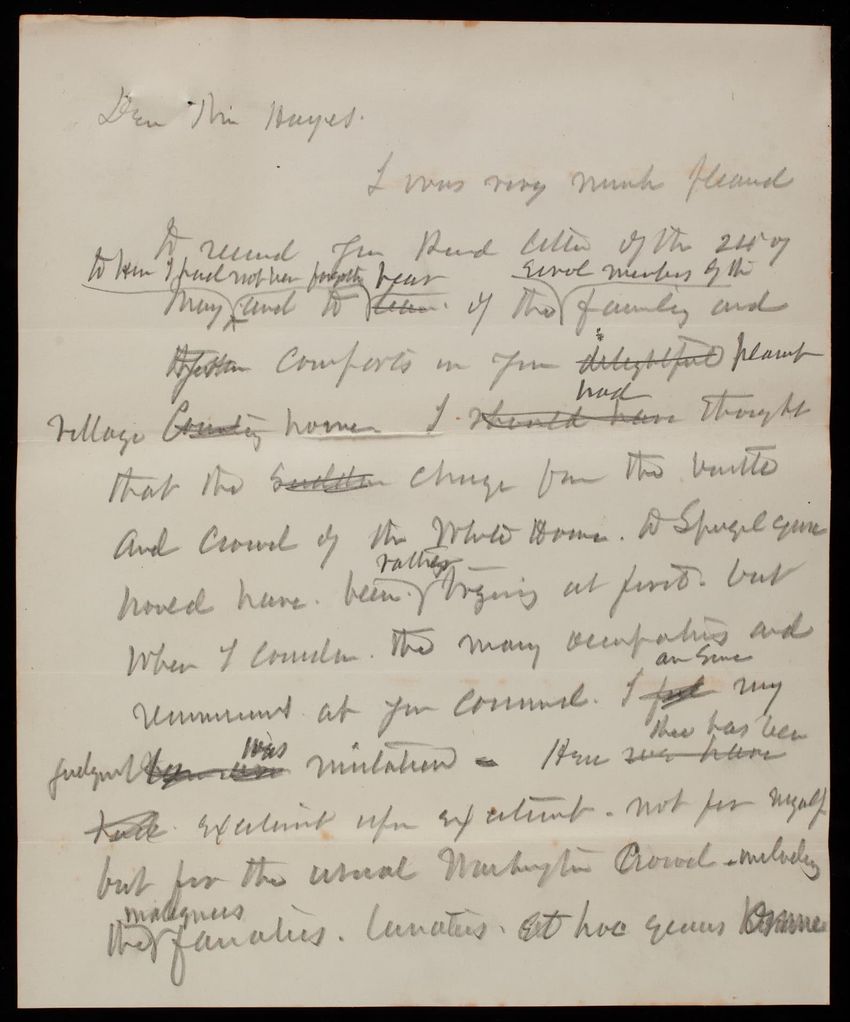 Dear Miss Hayes.
I was very much pleased
to receive your kind letter of the 24th of
to know I had not been forgotten hear several members of the
May and to learn of the family and
comforts in your delightful pleasant
had
village Country home I should have thought
that the sudden change from the bustle
and crowd of the White House. to Spiegel grove
rather
would have been trying at first. but
when I consider the many occupations and
am sure
resources at your command. I feel my
there has been
judgment was mistaken - Here we have
had excitement upon excitement. not for myself
but for the usual Washington Crowd. including
the fanatics. lunatics. et hoc genus omne